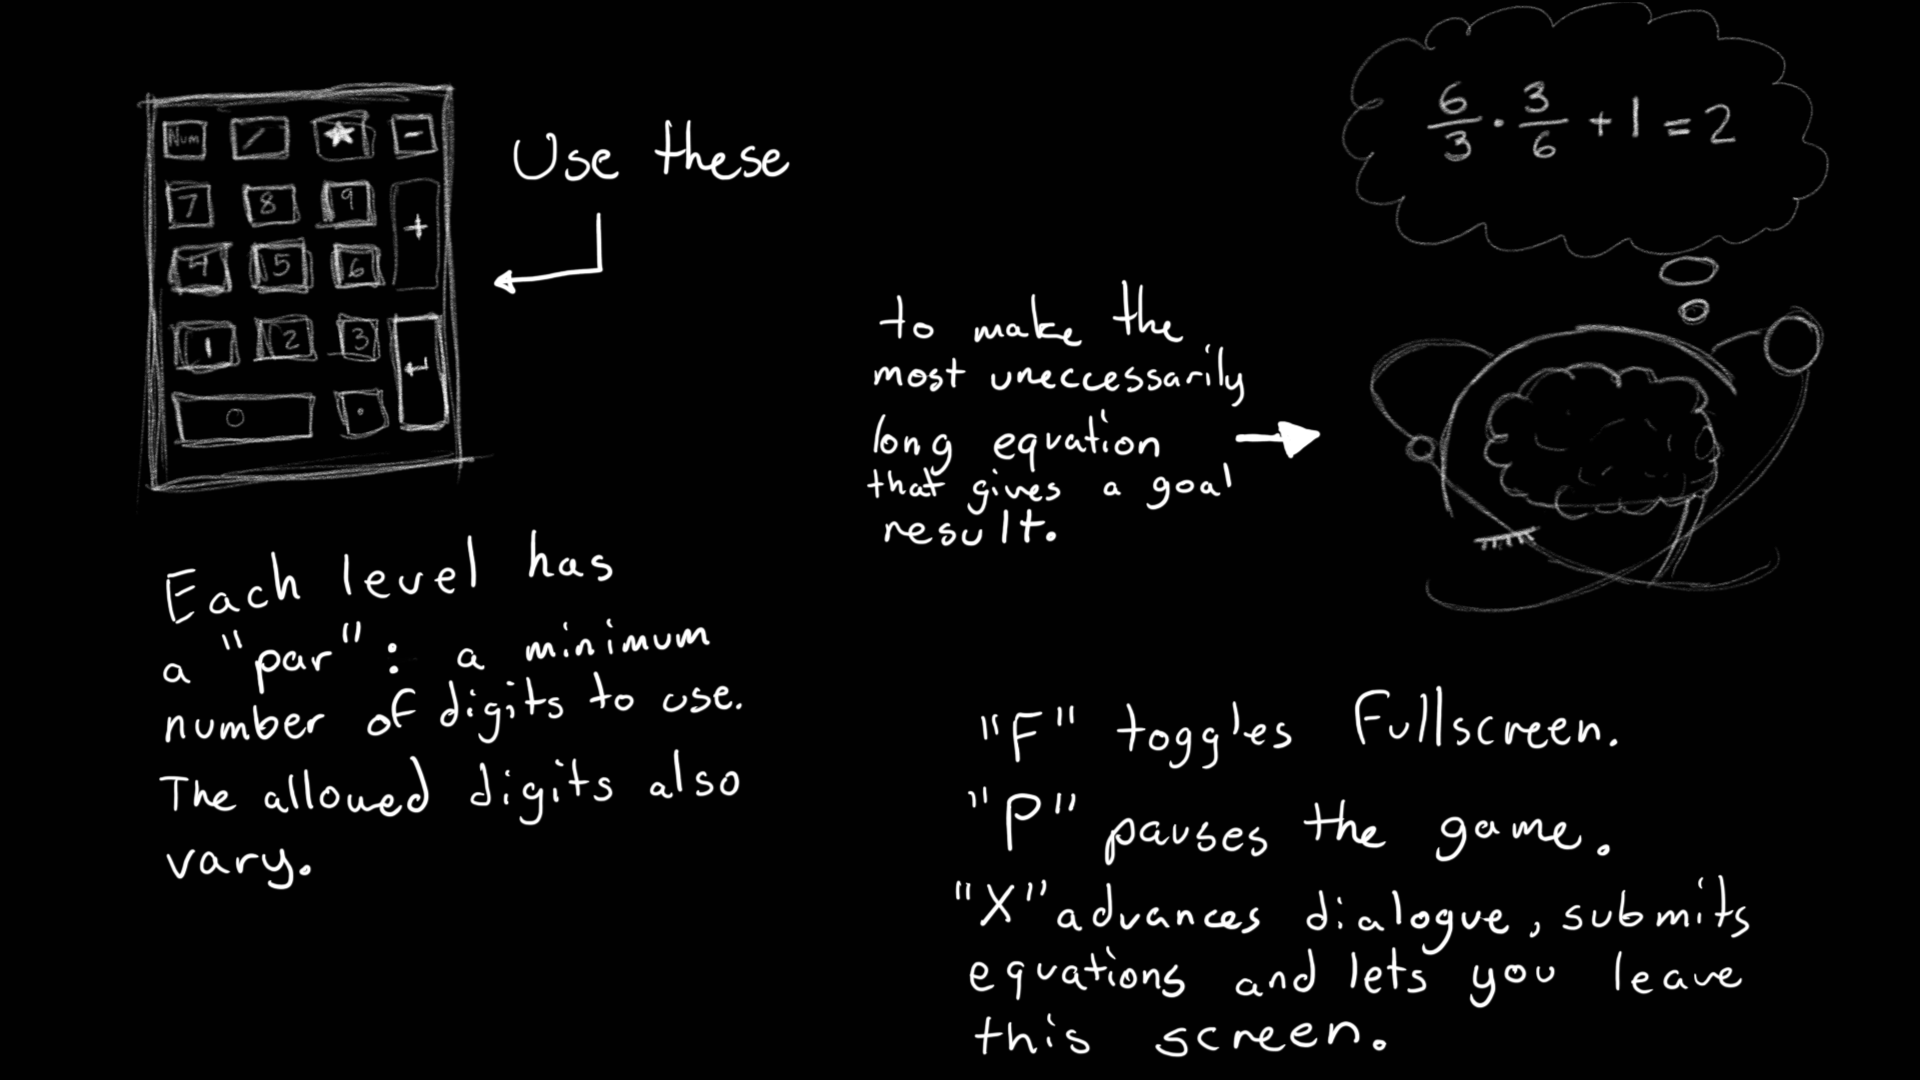 Num / ★ -
7 8 9 +
4 5 6
1 2 3 ↵
0 .
Use these
6/3 · 3/6 + 1 = 2
to make the
most uneccessarily
long equation
that gives a goal
result.
Each level has
a "par": a minimum
number of digits to use.
The allowed digits also
vary.
"F" toggles Fullscreen.
"P" pauses the game.
"X" advances dialogue, submits
equations and lets you leave
this screen.